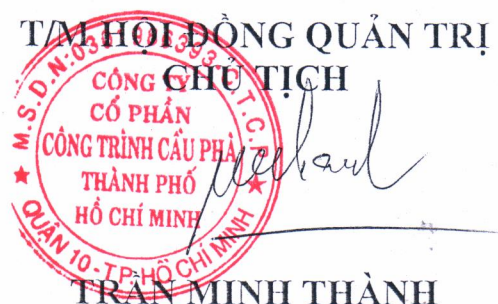 T/M HỘI ĐỒNG QUẢN TRỊ
CHỦ TỊCH
CÔNG TY
CỔ PHẦN
CÔNG TRÌNH CẦU PHÀ
THÀNH PHỐ
HỒ CHÍ MINH
QUẬN 10 - T.P HỒ CHÍ MINH
TRẦN MINH THÀNH